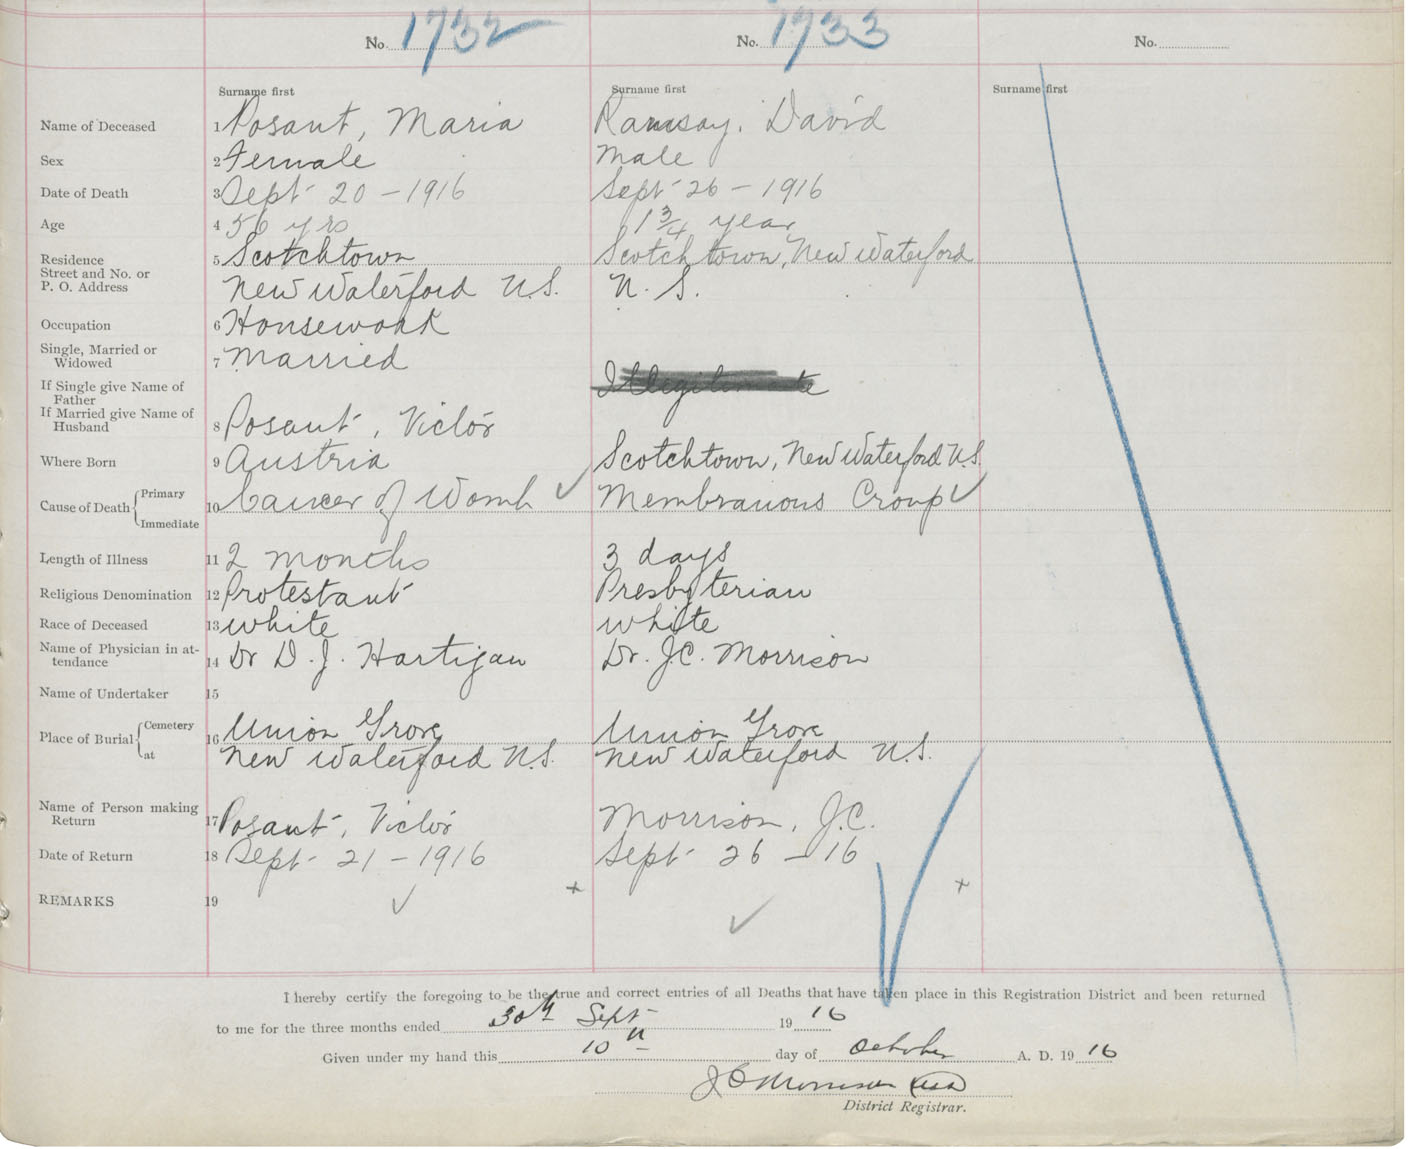 No. 1732 No. 1733 No.
Surname first Surname first Surname first
Name of Deceased 1 Posant, Maria Ramsay, David
Sex 2 Female Male
Date of Death 3 Sept 20 - 1916 Sept 26 - 1916
Age 4 56 yrs 1 3/4 year
Residence 5 Scotchtown Scotchtown, New Waterford
Street and No. or
P. O. Address New Waterford N.S. N. S.
Occupation 6 Housework
Single, Married or
Widowed 7 Married
If Single give Name of
Father Illegitimate
If Married give Name of
Husband 8 Posant, Victor
Where Born 9 Austria Scotchtown, New Waterford N.S.
Cause of Death { Primary 10 Cancer of Womb ✓ Membranous Croup ✓
Immediate
Length of Illness 11 2 months 3 days
Religious Denomination 12 Protestant Presbyterian
Race of Deceased 13 white white
Name of Physician in at-
tendance 14 Dr D. J. Hartigan Dr. J.C. Morrison
Name of Undertaker 15
Place of Burial { Cemetery 16 Union Grove Union Grove
at New Waterford N.S. New Waterford N.S.
Name of Person making
Return 17 Posant, Victor Morrison, J.C.
Date of Return 18 Sept - 21 - 1916 Sept 26 - 16
REMARKS 19
I hereby certify the foregoing to be the true and correct entries of all Deaths that have taken place in this Registration District and been returned
to me for the three months ended 30th Sept 19 16
Given under my hand this 10th day of October A. D. 19 16
J C Morrison
District Registrar.